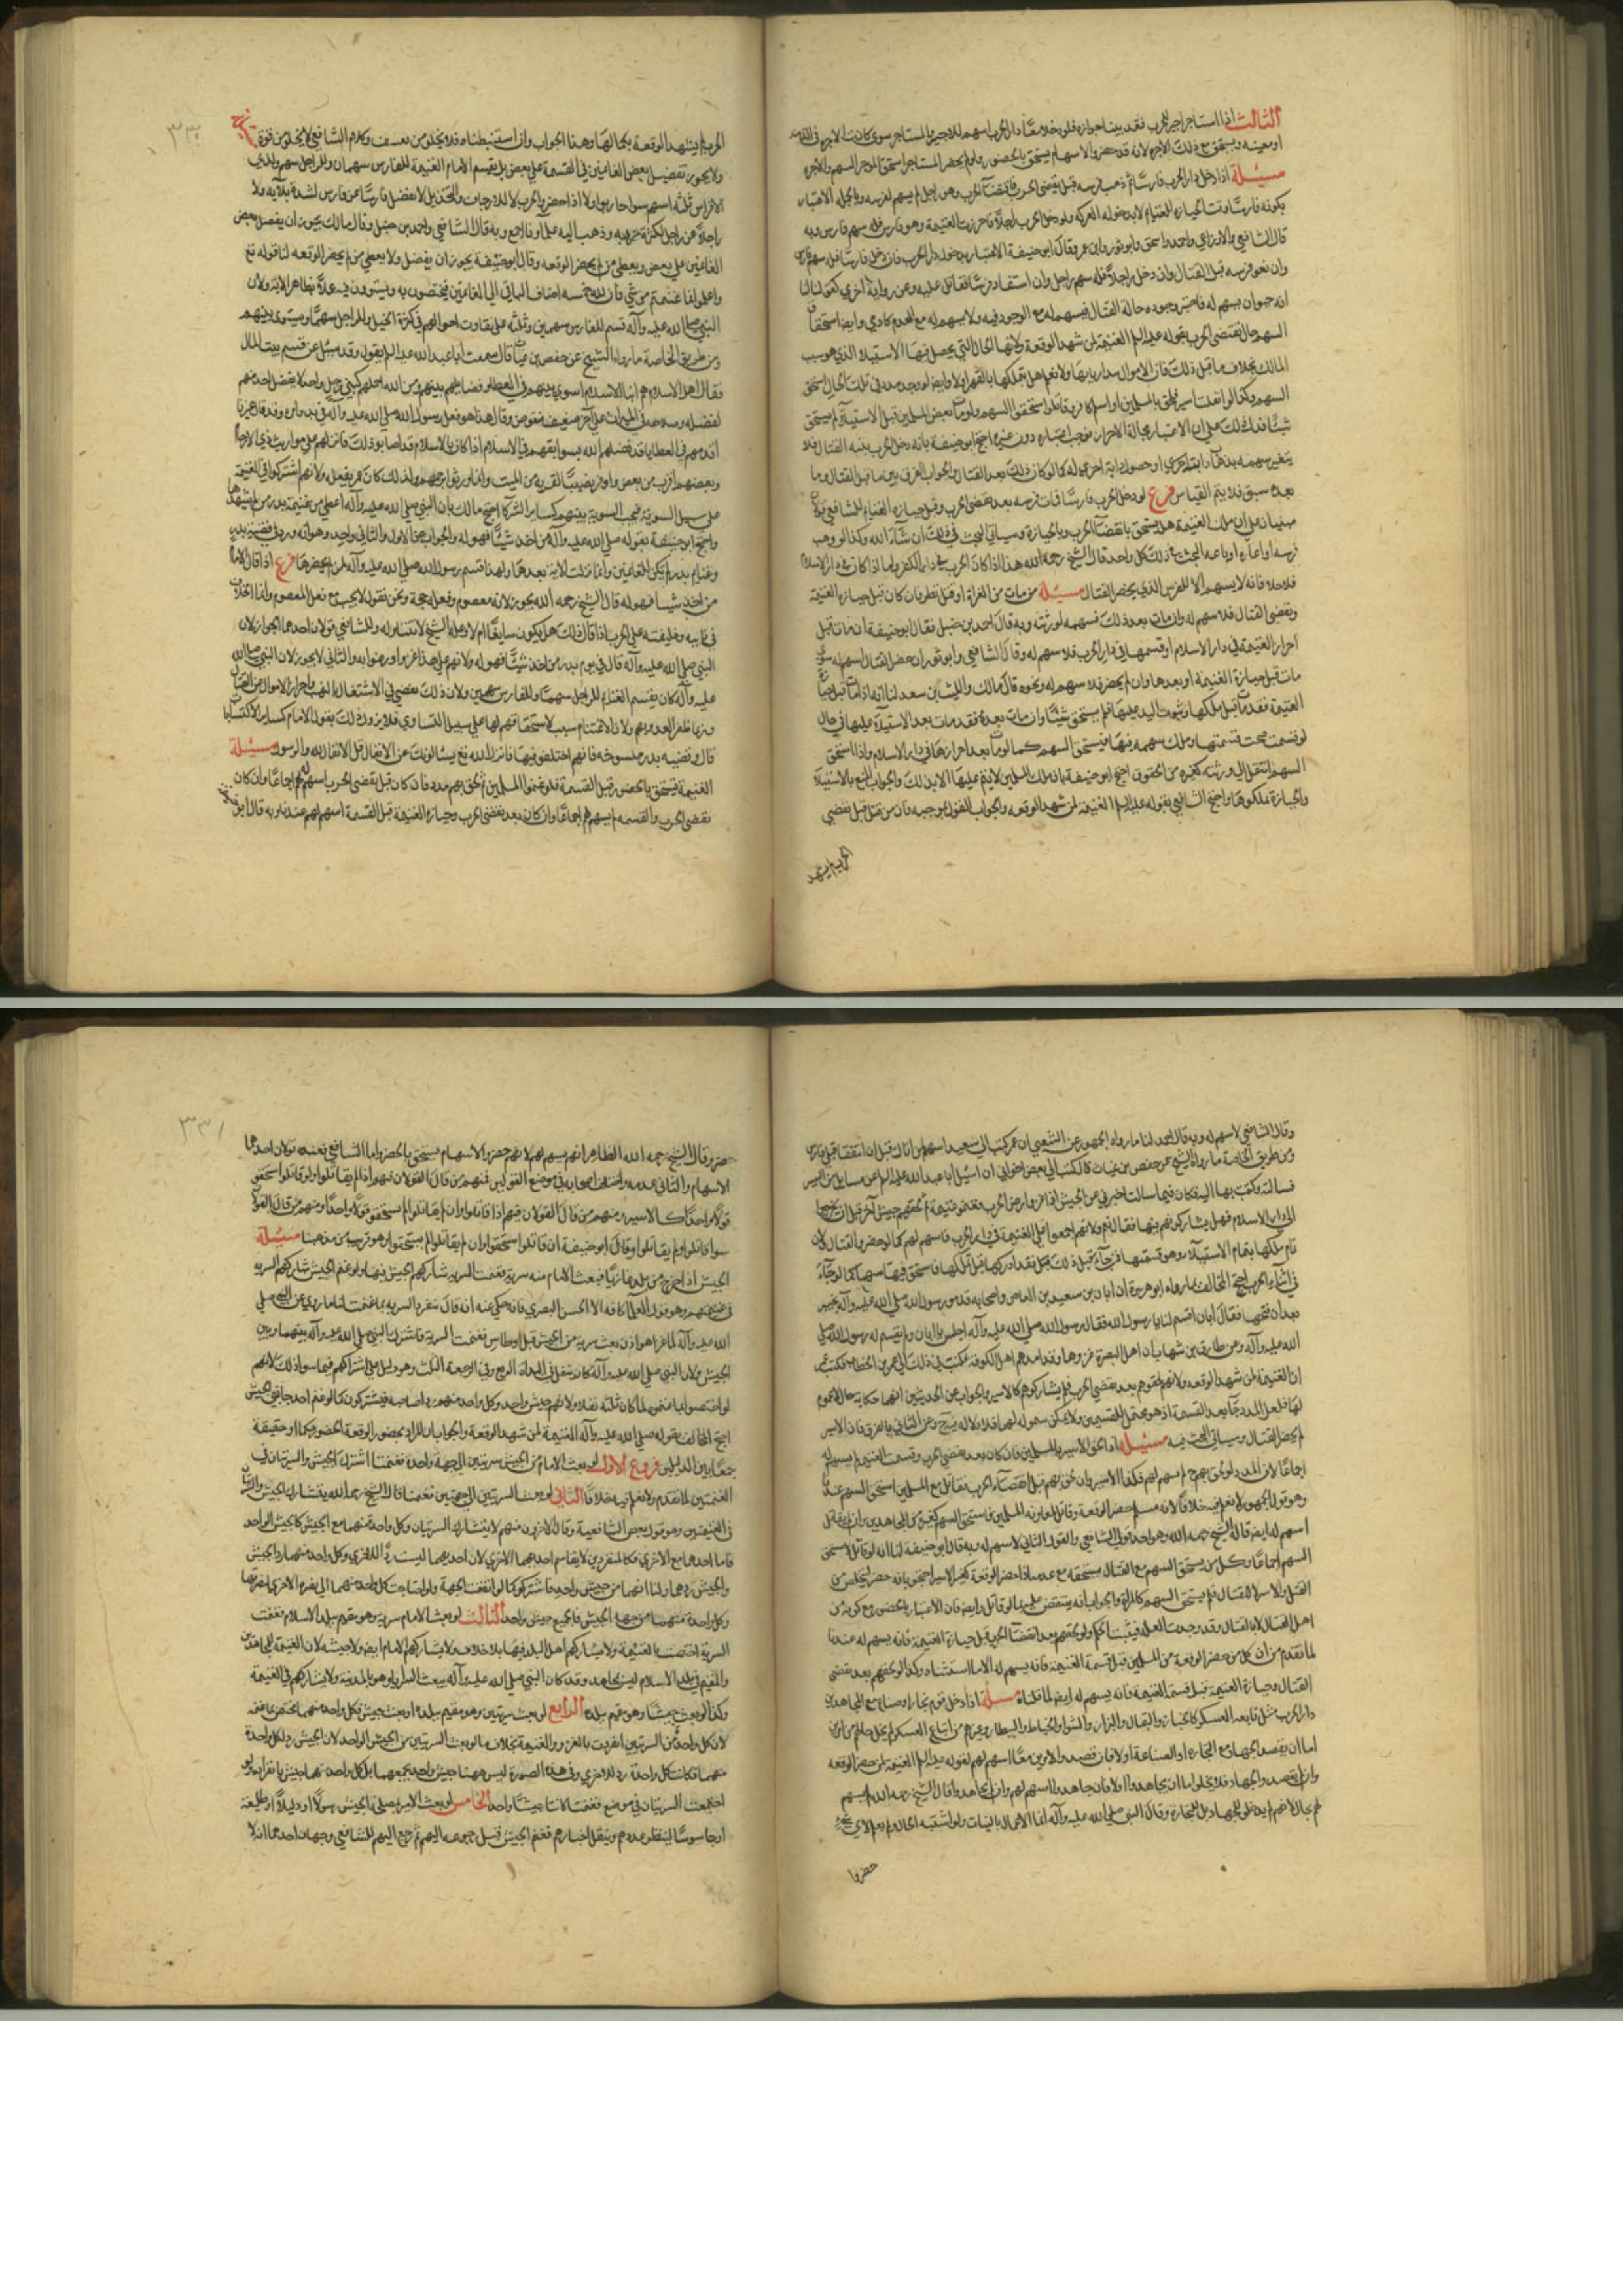 الثالث اذا استاجر اجير للحرب فقد بينا جوازه فلو دخلا معًا دار الحرب اسهم للاجير والمستاجر سوى كانت الاجره في الذمه
او معينه ويستحق مع ذلك الاجره لانه قد حضر والاسهام يستحق بالحضور ولو لم يحضر المستاجر استحق الموجر السهم والاجره
مسئلة اذا دخل دار الحرب فارسًا ثم ذهب فرسه قبل تقضى الحرب فانقضت الحرب وهو راجل لم يسهم لفرسه وبالجمله الاعتبار
بكونه فارسًا وقت الحيازه للغنايم لا بدخوله المعركه ولو دخل الحرب راجلًا فاحرزت الغنيمة وهو فارس فله سهم فارس وبه
قال الشافعي والاوزاعي واحمد واسحق وابو ثور وابن عمر وقال ابو حنيفة الاعتبار بدخول دار الحرب فان دخل فارسًا فله سهم فارس
وان نفق فرسه قبل القتال وان دخل راجلًا فله سهم راجل وان استفاد فرسًا فقاتل عليه وعنه رواية اخرى كقولنا لنا
انه حيوان يسهم له فاعتبر وجوده حالة القتال فيسهم له مع الوجود فيه ولا يسهم له مع العدم كادمي وايضا استحقاق
السهم حال تقضى الحرب بقوله عليه السلم الغنيمة لمن شهد الوقعة ولانها الحال التي يحصل فيها الاستيلاء الذي هو سبب
المالك بخلاف ما قبل ذلك فان الاموال بيد اربابها ولا نعلم هل نملكها بالقهر اولا وايضا لو وجد مدد في تلك الحال استحق
السهم وكذا لو انفلت اسير فلحق بالمسلمين او اسلم كافر فقاتلوا استحقوا السهم ولو مات بعض المسلمين قبل الاستيلاء لم يستحق
شيئًا فدل ذلك على ان الاعتبار بحالة الاحراز فوجب اعتباره دون غيره احتج ابو حنيفة بانه دخل الحرب بنية القتال فلا
يتغير سهمه بذهاب دابته اخرى او حصول دابة اخرى له كما لو كان ذلك بعد القتال والجواب الفرق بين ما قبل القتال وما
بعده سبق فلا يتم القياس فرع لو دخل الحرب فارسًا فمات فرسه بعد تقضى الحرب وقبل حيازه الغنايم للشافعي قولان
مبنيان على ان ملك الغنيمة هل يستحق بانقضاء الحرب وبالحيازة وسياتي البحث في ذلك ان شاء الله وكذا لو وهب
فرسه او اعاره او باعه البحث في ذلك كل واحد قال الشيخ رحمه الله هذا اذا كان الحرب في دار الكفر واما اذا كان في دار الاسلام
فلا خلاف انه لا يسهم الا للفرس الذي يحضر القتال مسئلة من مات من الغزاة او قتل نظر فان كان قبل حيازه الغنيمة
وتقضى القتال فلا سهم له وان مات بعد ذلك فسهمه لورثته وبه قال احمد بن حنبل فقال ابو حنيفة ان مات قبل
احراز الغنيمة في دار الاسلام او قسمها في دار الحرب فلا سهم له وقال الشافعي وابو ثور ان حضر القتال اسهم له سوى
مات قبل حيازة الغنيمه او بعدها وان لم يحضر فلا سهم له ونحوه قال مالك والليث بن سعد لنا انه اذا مات قبل حيازة
الغنيمة فقد مات قبل ملكها وثبوت اليد عليها فلم يستحق شيئًا وان مات بعده فقد مات بعد الاستيلاء عليها في حال
لو قسمت صحت قسمتها وملك سهمه منها فيستحق السهم كما لو مات بعد احرازها في دار الاسلام واذا استحق
السهم انتقل الى ورثته كغيره من الحقوق احتج ابو حنيفة بانه ملك المسلمين لا يتم عليها الا بذلك والجواب المنع بل بالاستيلاء
والحيازة ملكوها واحتج الشافعي بقوله عليه السلم الغنيمه لمن شهد الوقعه والجواب القول بموجبه فان من قتل قبل تقضي
الحرب لم يشهد
٣٣٠
الحرب لم يشهد الوقعة بكمالها وهذا الجواب وان استنبطناه فلا يخلو من تعسف وكلام الشافعي لا يخلو من قوة
ولا يجوز تفضيل بعض الغانمين في القسمة على بعض بل يقسم الامام الغنيمة للفارس سهمان وللراجل سهم ولذي
الافراس ثلثه اسهم سوا حاربوا ولا اذا حضروا الحرب لا للدرجات والحذيل لا نفضل فارسًا عن فارس لشدة بلآيه ولا
راجلًا عن راجل لكثرة حربه وذهب اليه علماونا اجمع وبه قال الشافعي واحمد بن حنبل وقال مالك يجوز ان يفضل بعض
الغانمين على بعض ويعطى من لم يحضر الوقعه وقال ابو حنيفة يجوز ان يفضل ولا يعطى من لم يحضر الوقعه لنا قوله تع
واعلموا انما غنمتم من شي فان لله خمسه اضاف الباقي الى الغانمين فيختصون به ويستوون فيه عملًا بظاهر الاية ولان
النبي صلى الله عليه وآله قسم للفارس سهمين وثلثه على تفاوت احوالهم في كثرة الخيل وللراجل سهمًا وسوى بينهم
ومن طريق الخاصة ما رواه الشيخ عن حفص بن غياث قال سمعت ابا عبد الله عليه السلم يقول وقد سئل عن قسم بيت المال
فقال اهل الاسلام هم ابناء الاسلام اسوي بينهم في العطا وفضايلهم بينهم وبين الله اجعلهم كبني رجل واحد لا يفضل احد منهم
لفضله وصلاحه في الميراث على آخر ضعيف منقوص وقال هذا هو فعل رسول الله صلى الله عليه وآله في بدو امره وقد قال غيرنا
اقدمهم في العطا بما قد فضلهم الله بسوابقهم في الاسلام اذا كان بالاسلام قد اصابوا ذلك فانزلهم على مواريث ذوي الارحام
وبعضهم اقرب من بعض واوفر نصيبًا لقربه من الميت وانما ورثوا برحمهم وكذلك كان عمر يفعله ولانهم اشتركوا في الغنيمة
على سبيل السوية فيجب السوية بينهم كساير الشركاء احتج مالك بان النبي صلى الله عليه وآله اعطى من غنيمة بدر من لم يشهدها
واحتج ابو حنيفة بقوله صلى الله عليه وآله من اخذ شيئًا فهو له والجواب عن الاول والثاني واحد وهو انه ورد في قضية بدر
وغنايم بدر لم يكن للغانمين وانما نزلت الاية بعدها ولهذا قسم رسول الله صلى الله عليه وآله لمن لم يحضرها فرع اذا قال الامام
من اخذ شيئا فهو له قال الشيخ رحمه الله يجوز لانه معصوم وفعله حجة ونحن نقول لا بحث مع فعل المعصوم وانما الخلاف
في نايبه وخليفته على الحرب اذا قال ذلك هل يكون سايغًا ام لا وعلة الشيخ لا تتناوله وللشافعي قولان احدهما الجواز لان
النبي صلى الله عليه وآله قال في يوم بدر من اخذ شيئًا فهو له ولانهم على هذا غزوا ورضوا به والثاني لا يجوز لان النبي صلى الله
عليه وآله كان يقسم الغنايم للراجل سهمًا وللفارس سهمين ولان ذلك يفضي الى الاشتغال بالنهب واحراز الاموال عن القتال
وربما ظفر العدو بهم ولان الاغتنام سبب لاستحقاقهم لها على سبيل التساوى فلا يزول ذلك بقول الامام كساير الاكتسابات
قال وقضيه بدر منسوخه فانهم اختلفوا فيها فانزل الله تع يسئالونك عن الانفال قل الانفال لله والرسول مسئلة
الغنيمة تستحق بالحضور قبل القسمة فلو غنموا المسلمين ثم لحق بهم مدد فان كان قبل تقضى الحرب اسهم لهم اجماعًا وان كان
تقضى الحرب والقسمه لم يسهم لهم اجماعًا وان كان بعد تقضى الحرب وحيازه الغنيمة قبل القسمة اسهم لهم عندنا وبه قال ابو
وقال الشافعي لا سهم له وبه قال احمد لنا ما رواه الجمهور عن الشعبي ان عمر كتب الى سعيد اسهم لمن اتاك قبل ان تتفقا قتلى فارس
ومن طريق الخاصة ما رواه الشيخ عن حفص بن غياث قال كتب الى بعض اخواني ان اسئل ابا عبد الله عليه السلم عن مسايل من السير
فسالته وكتبت بها اليه فكان فيما سالت اخبرني عن الجيش اذا غزوا ارض الحرب وغنموا غنيمة ثم لحقهم جيش آخر قبل ان يخرجوا
الى دار الاسلام فهل يشاركونهم فيها فقال نعم ولانهم اجمعوا على الغنيمة في دار الحرب فاسهم لهم كما لو حضروا القتال لان
تمام ملكها بتمام الاستيلاء وهو قسمتها فمن جآء قبل ذلك فقد ادركها قبل تملكها فاستحق فيها سهما كما لو جآء
في اثناء الحرب احتج المخالف بما رواه ابو هريرة ان ابان بن سعيد بن العاص واصحابه قدموا رسول الله صلى الله عليه وآله بخيبر
بعد ان فتحها فقال ابان اقسم لنا يا رسول الله فقال رسول الله صلى الله عليه وآله اجلس يا ابان ولم يقسم له رسول الله صلى
الله عليه وآله وعن طارق بن شهاب ان اهل البصرة غزوا وقد امدهم اهل الكوفه فكتب في ذلك الى عمر بن الخطاب فكتب عمر
ان الغنيمة لمن شهد الوقعه ولانهم لحقوهم بعد تقضي الحرب فلم يشاركوهم كالاسير والجواب عن الحديثين انهما حكاية حال لا عموم
لها فلعل المدد جآء بعد القسمة اذ هو محتمل للقسمين ولا يمكن شموله لهما فلا دلالة فيه وعن الثاني بالفرق فان الاسير
لم يحضر القتال وسياتي البحث فيه مسئلة اما لحق الاسير بالمسلمين فان كان بعد تقضى الحرب وقسمت الغنيمة لم يسهم له
اجماعًا لان المدد لو لحق بهم ح لم يسهم لهم فكذا الاسير وان لحق بهم قبل انقضاء الحرب فقاتل مع المسلمين استحق السهم عندنا
وهو قول الجمهور لا نعلم فيه خلافًا لانه مسلم حضر الوقعة وقاتل لمعاونه المسلمين فاستحق السهم كغيره من المجاهدين وان لم يقاتل
اسهم له ايضا قاله الشيخ رحمه الله وهو احد قولي الشافعي والقول الثاني لا سهم له وبه قال ابو حنيفة لنا انه لو قاتل لاستحق
السهم اجماعًا وكل من يستحق السهم مع القتال يستحقه مع عدمه اذا حضر الوقعة كغير الاسير احتجوا بانه حضر ليتخلص من
القتل والاسر لا للقتال فلم يستحق السهم كالمراة والجواب انه ينتقض عليه بما لو قاتل وايضا فان الاعتبار بالحضور مع كونه من
اهل القتال لا بالقتال وقد وجدت العلة فيثبت الحكم ولو لحقهم بعد انقضاء الحرب قبل حيازة الغنيمة فانه يسهم له عندنا
لما تقدم من ان كل من حضر الوقعة من المسلمين قبل قسمة الغنيمة فانه يسهم له الا ما استثناه وكذا لو لحقهم بعد تقضى
القتال وحيازة الغنيمة قبل قسمة الغنيمة فانه يسهم له ايضا لما قلناه مسئلة اذا دخل قوم تجار او صناع مع المجاهدين
دار الحرب مثل تابعه العسكر كالخباز والبقال والبزاز والشوا والخياط والبيطار وغيرهم من اتباع العسكر لم يخل حالهم من امرين
اما ان يقصد الجهاد مع التجاره او الصناعة او لا فان قصد والامرين معًا اسهم لهم لقوله عليه السلم الغنيمة لمن حضر الوقعه
وان لم يقصد والجهاد فلا يخلوا اما ان يجاهدوا او لا فان جاهدوا اسهم لهم وان لم يجاهدوا قال الشيخ رحمه الله لم يسهم
لهم بحال لانهم لم يدخلوا للجهاد بل للتجارة وقال النبي صلى الله عليه وآله انما الاعمال بالنيات ولو اشتبه الحال ولم يعلم لاي شئ
حضروا
٣٣١
حضروا قال الشيخ رحمه الله الظاهر انهم يسهم لهم لانهم حضروا والاسهام يستحق بالحضور واما الشافعي فعنه قولان احدهما
الاسهام والثاني عدمه واختلف اصحابه في موضع القولين فمنهم من قال القولان فيهم اذا لم يقاتلوا ولو قاتلوا استحقوا
قولًا واحدًا كالاسير ومنهم من قال القولان فيهم اذا قاتلوا وان لم يقاتلوا لم يستحقوا قولًا واحدًا ومنهم من قال القولان
سوا قاتلوا او لم يقاتلوا وقال ابو حنيفة ان قاتلوا استحقوا وان لم يقاتلوا لم يستحقوا وهو قريب من مذهبنا مسئلة
الجيش اذا خرج من بلد غازيًا فبعث الامام منه سرية فغنمت السريه شاركهم الجيش فيها ولو غنم الجيش شاركهم السريه
في غنيمتهم وهو قول العلماء كافه الا الحسن البصري فانه حكى عنه انه قال تنفرد السريه بما غنمت لنا ما روى عن النبي صلى
الله عليه وآله لما غزا هوازن بعث سرية من الجيش قبل اوطاس فغنمت السرية فاشرك النبي صلى الله عليه وآله بينهما وبين
الجيش ولان النبي صلى الله عليه وآله كان ينفل في البداة الربع وفي الرجعة الثلث وهو دليل على اشتراكهم فيما سوا ذلك لانهم
لو اختصوا بما غنموه لما كان ثلثه نفلا ولانهم جيش واحد وكل واحد منهم ردء لصاحبه فيشتركون كما لو غنم احد جانبي الجيش
احتج المخالف بقوله صلى الله عليه وآله الغنيمة لمن شهد الوقعة والجواب ان المراد بحضور الوقعة الحضور حكما او حقيقة
جمعًا بين الدليلين فروع الاول لو بعث الامام من الجيش سريتين الى جهة واحدة فغنمتا اشترك الجيش والسريتان في
الغنيمتين لما تقدم ولا نعلم فيه خلافًا الثاني لو بعث السريتين الى جهتين فغنمتا قال الشيخ رحمه الله يتشارك الجيش والسريتان
في الغنيمتين وهو قول بعض الشافعية وقال الاخرون منهم لا يتشارك السريتان وكل واحدة منهما مع الجيش كالجيش الواحد
فاما احداهما مع الاخرى فكالمنفردين لا يقاسم احديهما الاخرى لان احديهما ليست ردًّا للاخرى وكل واحدة منهما رد الجيش
والجيش ردهما ولنا انهما من جيش واحد فاشتركوا كما لو اتفقت الجهة ولو احتاجت كل واحدة منهما الى نصرة الاخرى لنصرتها
وكل واحدة منهما من جهة الجيش فالجميع جيش واحد الثالث لو بعث الامام سرية وهو مقيم ببلد الاسلام فغنمت
السرية اختصت بالغنيمة ولا يشاركهم اهل البلد فيها بلا خلاف ولا يشاركهم الامام ايضا ولا جيشه لان الغنيمة للمجاهدين
والمقيم في بلد الاسلام ليس بمجاهد وقد كان النبي صلى الله عليه وآله يبعث السرايا وهو بالمدينة ولا يشاركهم في الغنيمة
وكذا لو بعث جيشًا وهو مقيم ببلده الرابع لو بعث سريتين وهو مقيم ببلده او بعث جيشين فكل واحد منهما يختص بما غنمه
لان كل واحدة من السريتين انفردت بالغزو والغنيمة بخلاف ما لو بعث السريتين من الجيش الواحد لان الجيش رد لكل واحدة
منهما فكانت كل واحدة رد للاخرى وفي هذه الصورة ليس ههنا جيش واحد يجمعهما بل كل واحد منهما جيش بانفراده ولو
اجتمعت السريتان في موضع فغنمتا كانتا جيشًا واحدًا الخامس لو بعث الامير لمصلحة الجيش رسولًا او دليلًا او طليعة
او جاسوسًا لينظر عددهم وينقل اخبارهم فغنم الجيش قبل رجوعه اليهم ثم رجع اليهم للشافعي وجهان احدهما انه لا